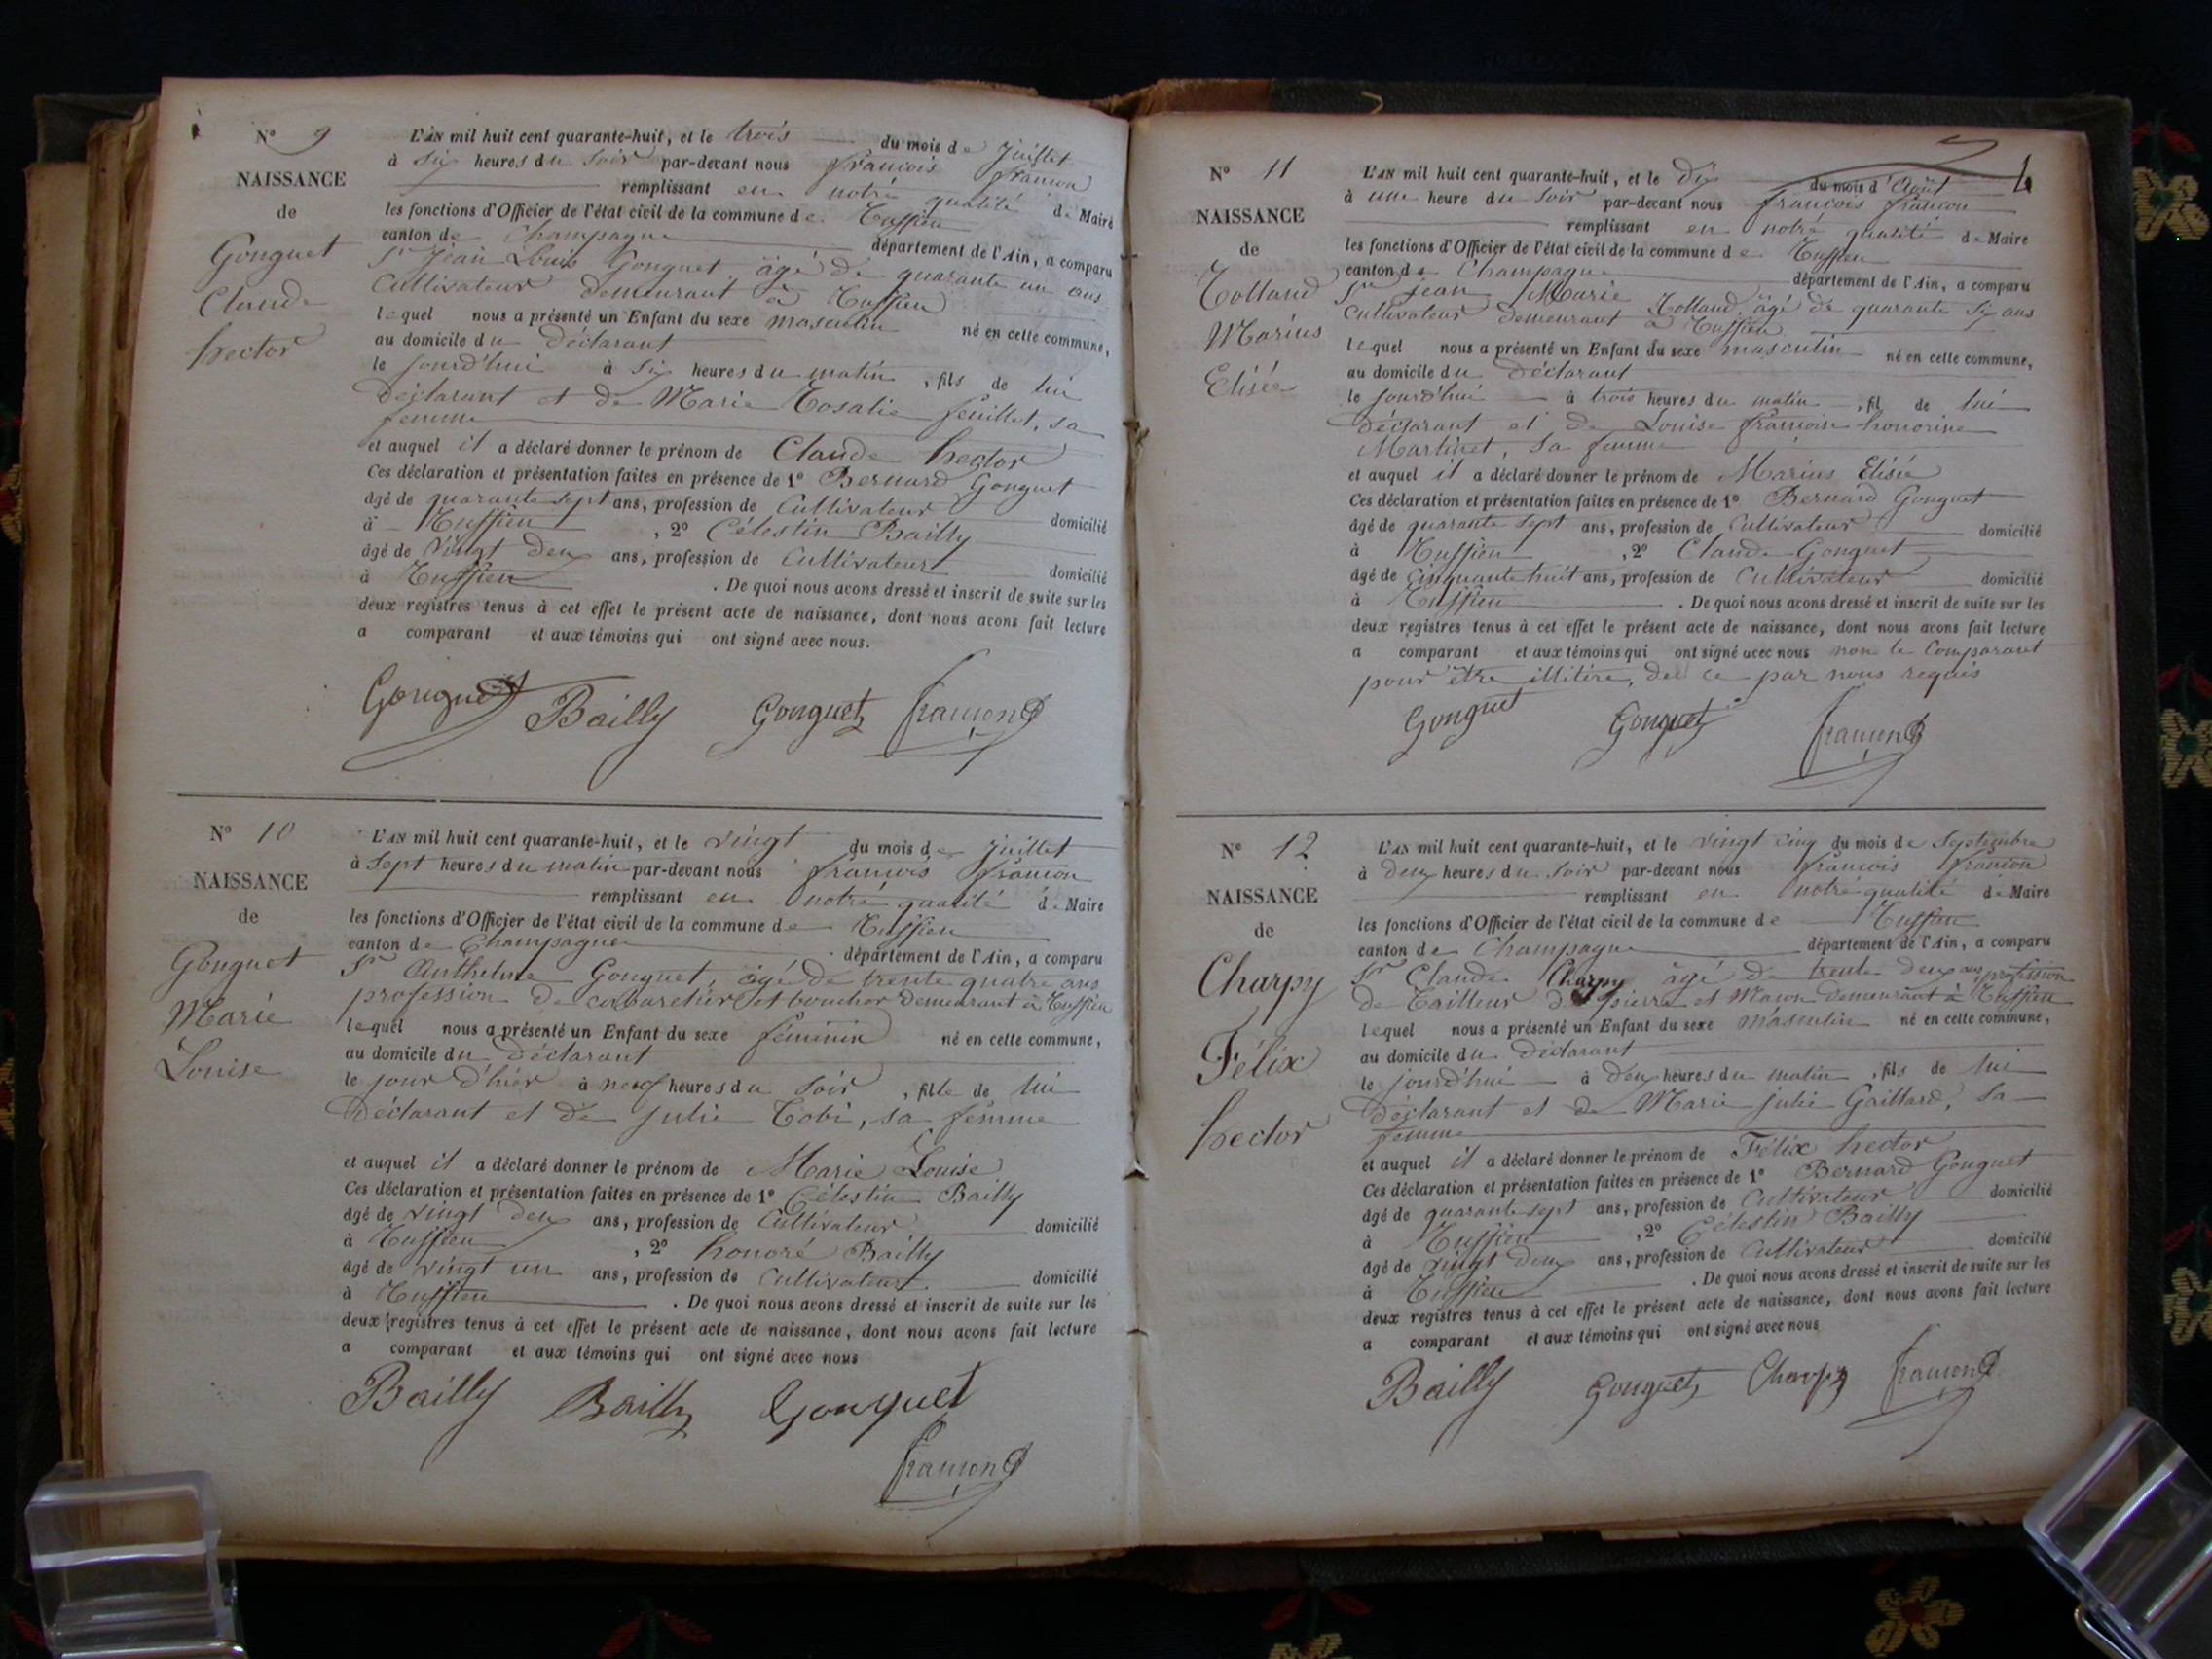 N° 9
NAISSANCE
de
Gonguet
Claude
hector
L'AN mil huit cent quarante-huit, et le trois du mois de Juillet
à six heures du soir par-devant nous françois françon
remplissant en notre qualité de Maire
les fonctions d'Officier de l'état civil de la commune de
canton de Champagne département de l'Ain, a comparu
Sr Jean Louis Gonguet, âgé de quarante un ans
Cultivateur demeurant à
lequel nous a présenté un Enfant du sexe masculin né en cette commune,
au domicile du déclarant
le jourd'hui à six heures du matin, fils de lui
déclarant et de Marie Rosalie feuillet, sa
femme
et auquel il a déclaré donner le prénom de Claude hector
Ces déclaration et présentation faites en présence de 1° Bernard Gonguet
âgé de quarante sept ans, profession de Cultivateur domicilié
à , 2° Célestin Bailly
âgé de vingt deux ans, profession de Cultivateur domicilié
à . De quoi nous avons dressé et inscrit de suite sur les
deux registres tenus à cet effet le présent acte de naissance, dont nous avons fait lecture
a comparant et aux témoins qui ont signé avec nous.
Gonguet Bailly Gonguet
N° 10
NAISSANCE
de
Gonguet
Marie
Louise
L'AN mil huit cent quarante-huit, et le vingt du mois de Juillet
à sept heures du matin par-devant nous françois françon
remplissant en notre qualité de Maire
les fonctions d'Officier de l'état civil de la commune de
canton de Champagne département de l'Ain, a comparu
Sr Anthelme Gonguet, âgé de trente quatre ans
profession de cabaretier et boucher demeurant à
lequel nous a présenté un Enfant du sexe féminin né en cette commune,
au domicile du déclarant
le jour d'hier à neuf heures du soir, fille de lui
déclarant et de julie Tobi, sa femme
et auquel il a déclaré donner le prénom de Marie Louise
Ces déclaration et présentation faites en présence de 1° Célestin Bailly
âgé de vingt deux ans, profession de Cultivateur domicilié
à , 2° honoré Bailly
âgé de vingt un ans, profession de Cultivateur domicilié
à . De quoi nous avons dressé et inscrit de suite sur les
deux registres tenus à cet effet le présent acte de naissance, dont nous avons fait lecture
a comparant et aux témoins qui ont signé avec nous
Bailly Bailly Gonguet
N° 11
NAISSANCE
de
Tolland
Marius
Elisée
L'AN mil huit cent quarante-huit, et le dix du mois d'Août
à une heure du soir par-devant nous françois françon
remplissant en notre qualité de Maire
les fonctions d'Officier de l'état civil de la commune de
canton de Champagne département de l'Ain, a comparu
Sr jean Marie Tolland, âgé de quarante six ans
Cultivateur demeurant à
lequel nous a présenté un Enfant du sexe masculin né en cette commune,
au domicile du déclarant
le jourd'hui à trois heures du matin, fil de lui
déclarant et de Louise françoise honorine
Martinet, sa femme
et auquel il a déclaré donner le prénom de Marius Elisée
Ces déclaration et présentation faites en présence de 1° Bernard Gonguet
âgé de quarante sept ans, profession de Cultivateur domicilié
à , 2° Claude Gonguet
âgé de cinquante huit ans, profession de Cultivateur domicilié
à . De quoi nous avons dressé et inscrit de suite sur les
deux registres tenus à cet effet le présent acte de naissance, dont nous avons fait lecture
a comparant et aux témoins qui ont signé avec nous non le Comparant
pour être illitère, de ce par nous requis
Gonguet Gonguet
N° 12
NAISSANCE
de
Charpy
Félix
hector
L'AN mil huit cent quarante-huit, et le vingt cinq du mois de Septembre
à deux heures du soir par-devant nous françois françon
remplissant en notre qualité de Maire
les fonctions d'Officier de l'état civil de la commune de
canton de Champagne département de l'Ain, a comparu
Sr Claude Charpy âgé de trente deux ans profession
de Tailleur de pierre et Maçon demeurant à
lequel nous a présenté un Enfant du sexe masculin né en cette commune,
au domicile du déclarant
le jourd'hui à deux heures du matin, fils de lui
déclarant et de Marie julie Gaillard, sa
femme
et auquel il a déclaré donner le prénom de Félix hector
Ces déclaration et présentation faites en présence de 1° Bernard Gonguet
âgé de quarante sept ans, profession de Cultivateur domicilié
à , 2° Célestin Bailly
âgé de vingt deux ans, profession de Cultivateur domicilié
à . De quoi nous avons dressé et inscrit de suite sur les
deux registres tenus à cet effet le présent acte de naissance, dont nous avons fait lecture
a comparant et aux témoins qui ont signé avec nous
Bailly Gonguet Charpy